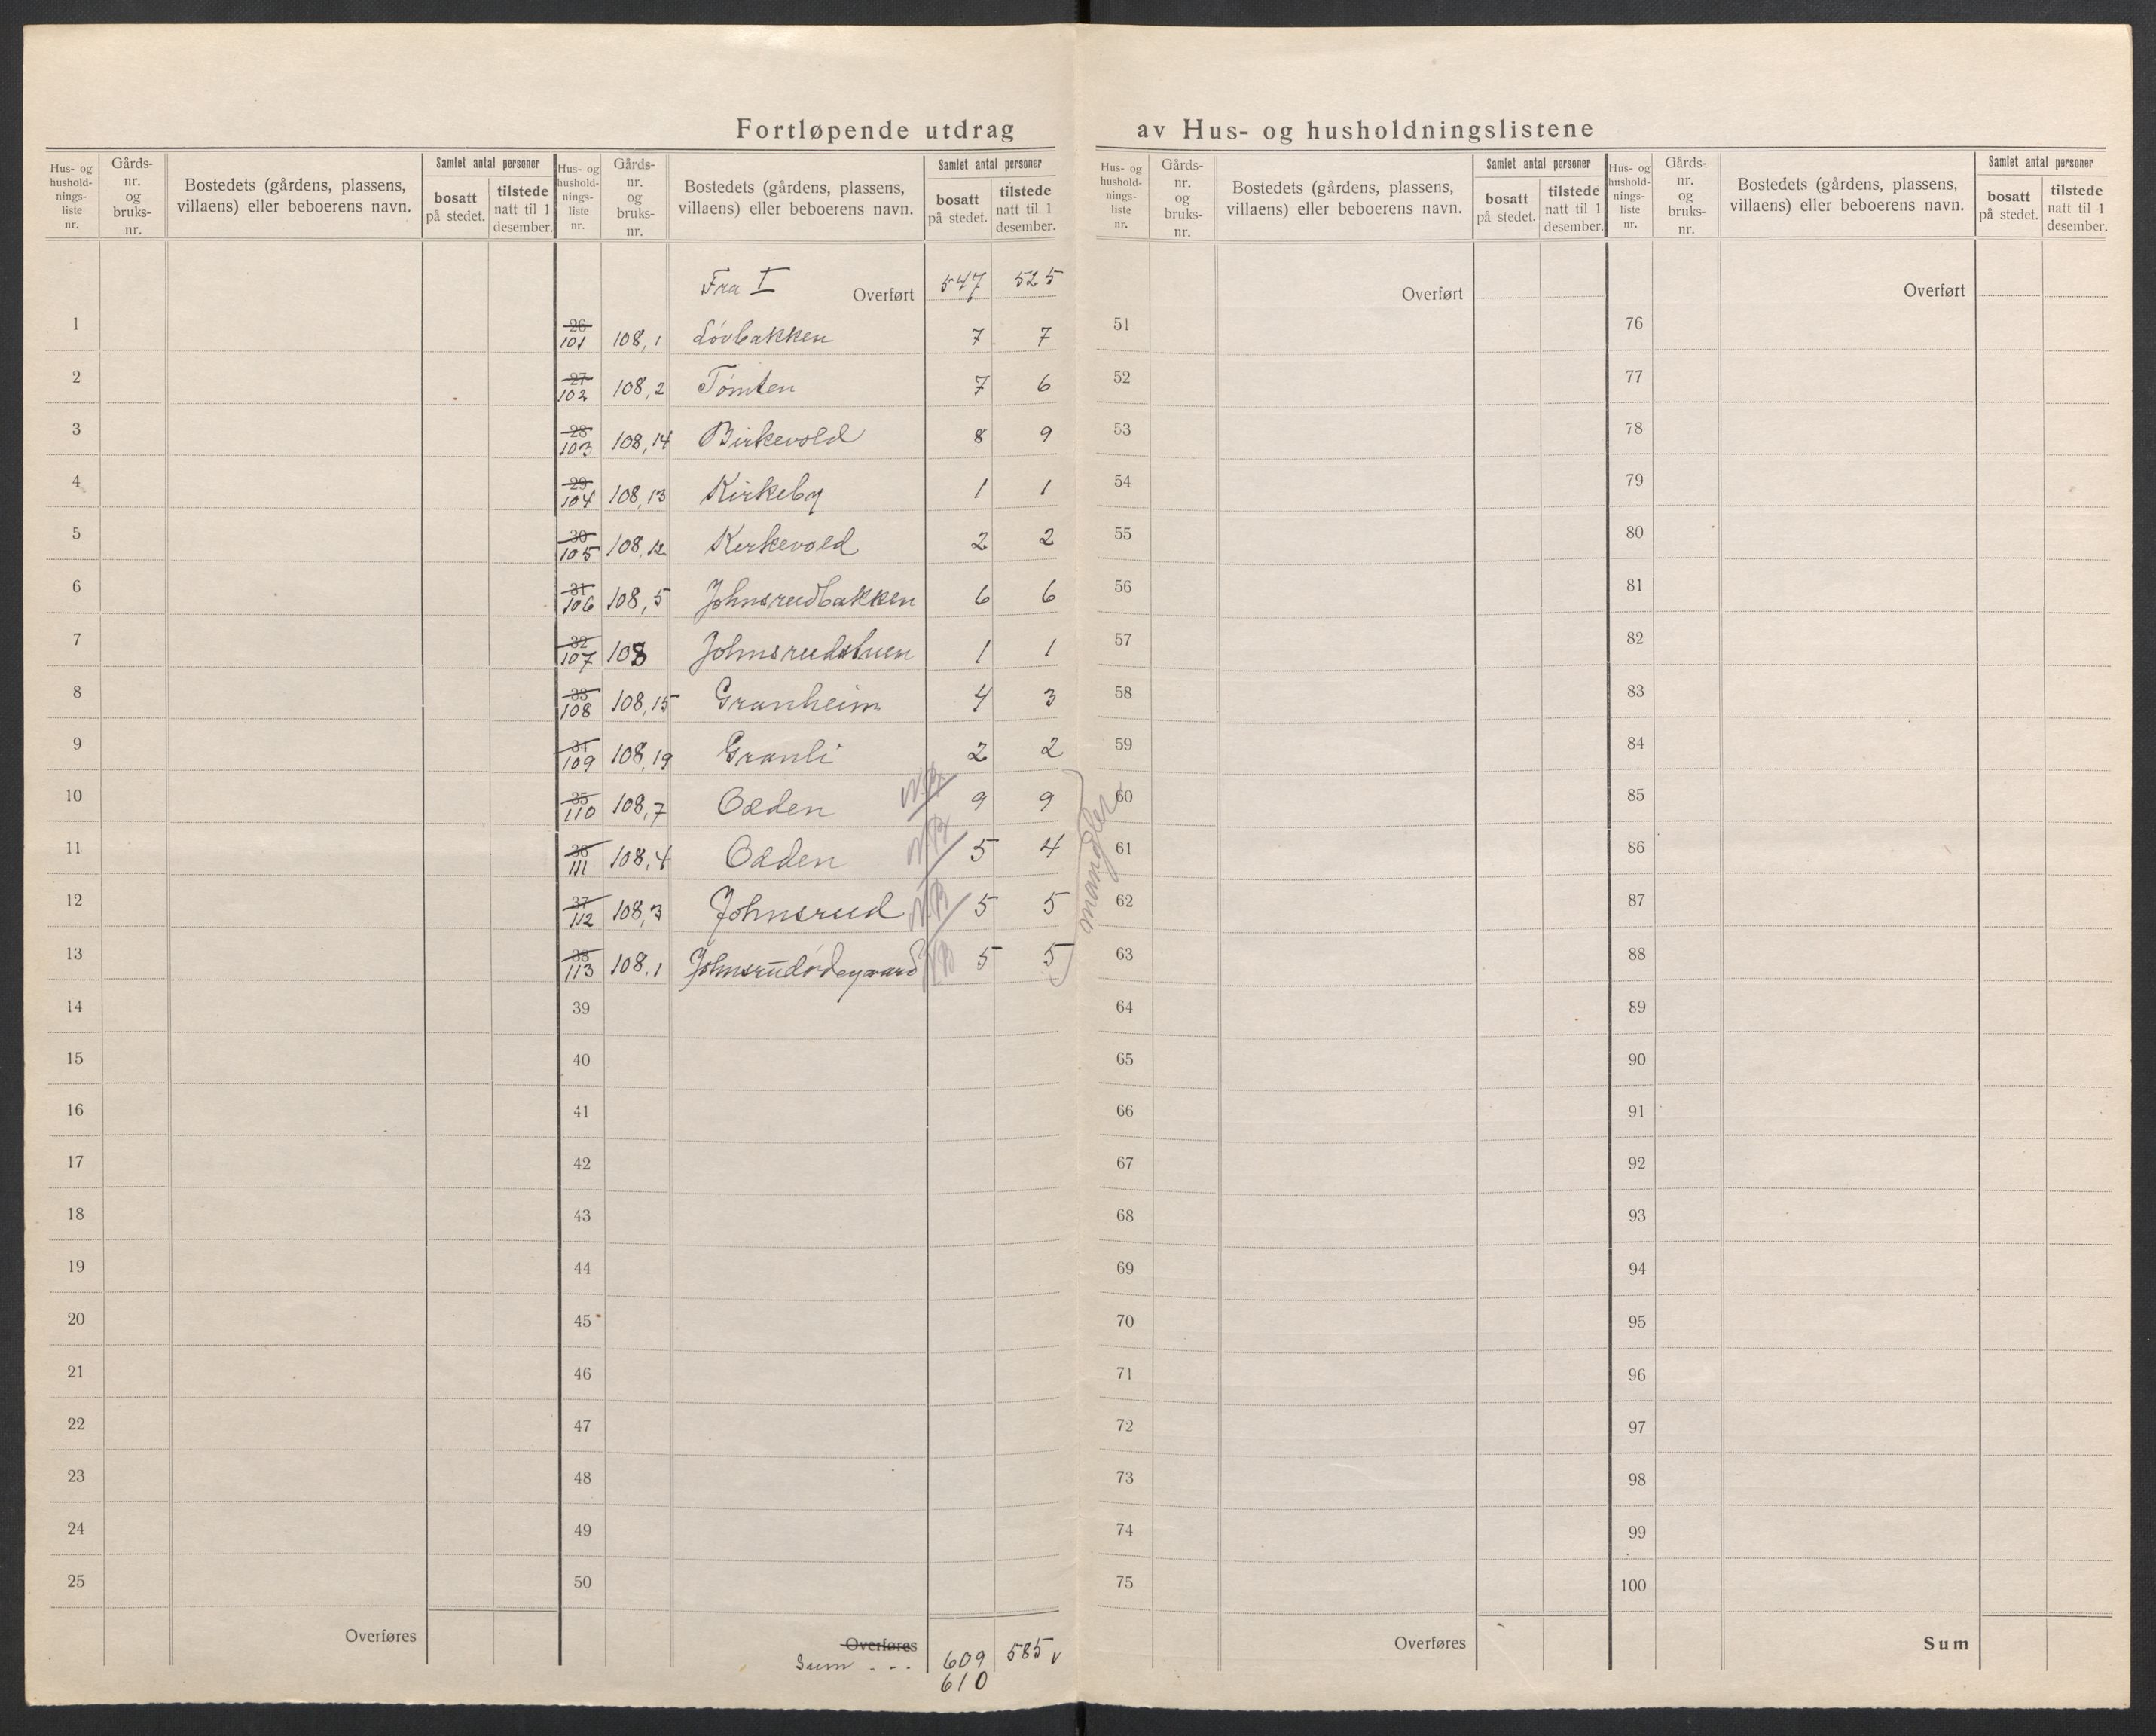 Fortløpende utdrag av Hus- og husholdningslistene
Hus- og hushold- nings- liste nr. Gårds- nr. og bruks- nr. Bostedets (gårdens, plassens, villaens) eller beboerens navn. Samlet antal personer bosatt på stedet. tilstede natt til 1 desember.
Hus- og hushold- nings- liste nr. Gårds- nr. og bruks- nr. Bostedets (gårdens, plassens, villaens) eller beboerens navn. Samlet antal personer bosatt på stedet. tilstede natt til 1 desember.
Hus- og hushold- nings- liste nr. Gårds- nr. og bruks- nr. Bostedets (gårdens, plassens, villaens) eller beboerens navn. Samlet antal personer bosatt på stedet. tilstede natt til 1 desember.
Hus- og hushold- nings- liste nr. Gårds- nr. og bruks- nr. Bostedets (gårdens, plassens, villaens) eller beboerens navn. Samlet antal personer bosatt på stedet. tilstede natt til 1 desember.
1
2
3
4
5
6
7
8
9
10
11
12
13
14
15
16
17
18
19
20
21
22
23
24
25
Overføres
Fra I Overført 547 525
26 101 108,1 Løvbakken 7 7
27 102 108,2 Tømten 7 6
28 103 108,14 Birkevold 8 9
29 104 108,13 Kirkeby 1 1
30 105 108,12 Kirkevold 2 2
31 106 108,5 Johnsrudbakken 6 6
32 107 108 Johnsrudstuen 1 1
33 108 108,15 Granheim 4 3
34 109 108,19 Granli 2 2
35 110 108,7 Odden NB 9 9
36 111 108,4 Odden NB 5 4
37 112 108,3 Johnsrud NB 5 5
38 113 108,1 Johnsrudødegaard NB 5 5
mangler
39
40
41
42
43
44
45
46
47
48
49
50
Overføres
Sum . - . 609 585 v
610
Overført
51
52
53
54
55
56
57
58
59
60
61
62
63
64
65
66
67
68
69
70
71
72
73
74
75
Overføres
Overført
76
77
78
79
80
81
82
83
84
85
86
87
88
89
90
91
92
93
94
95
96
97
98
99
100
Sum